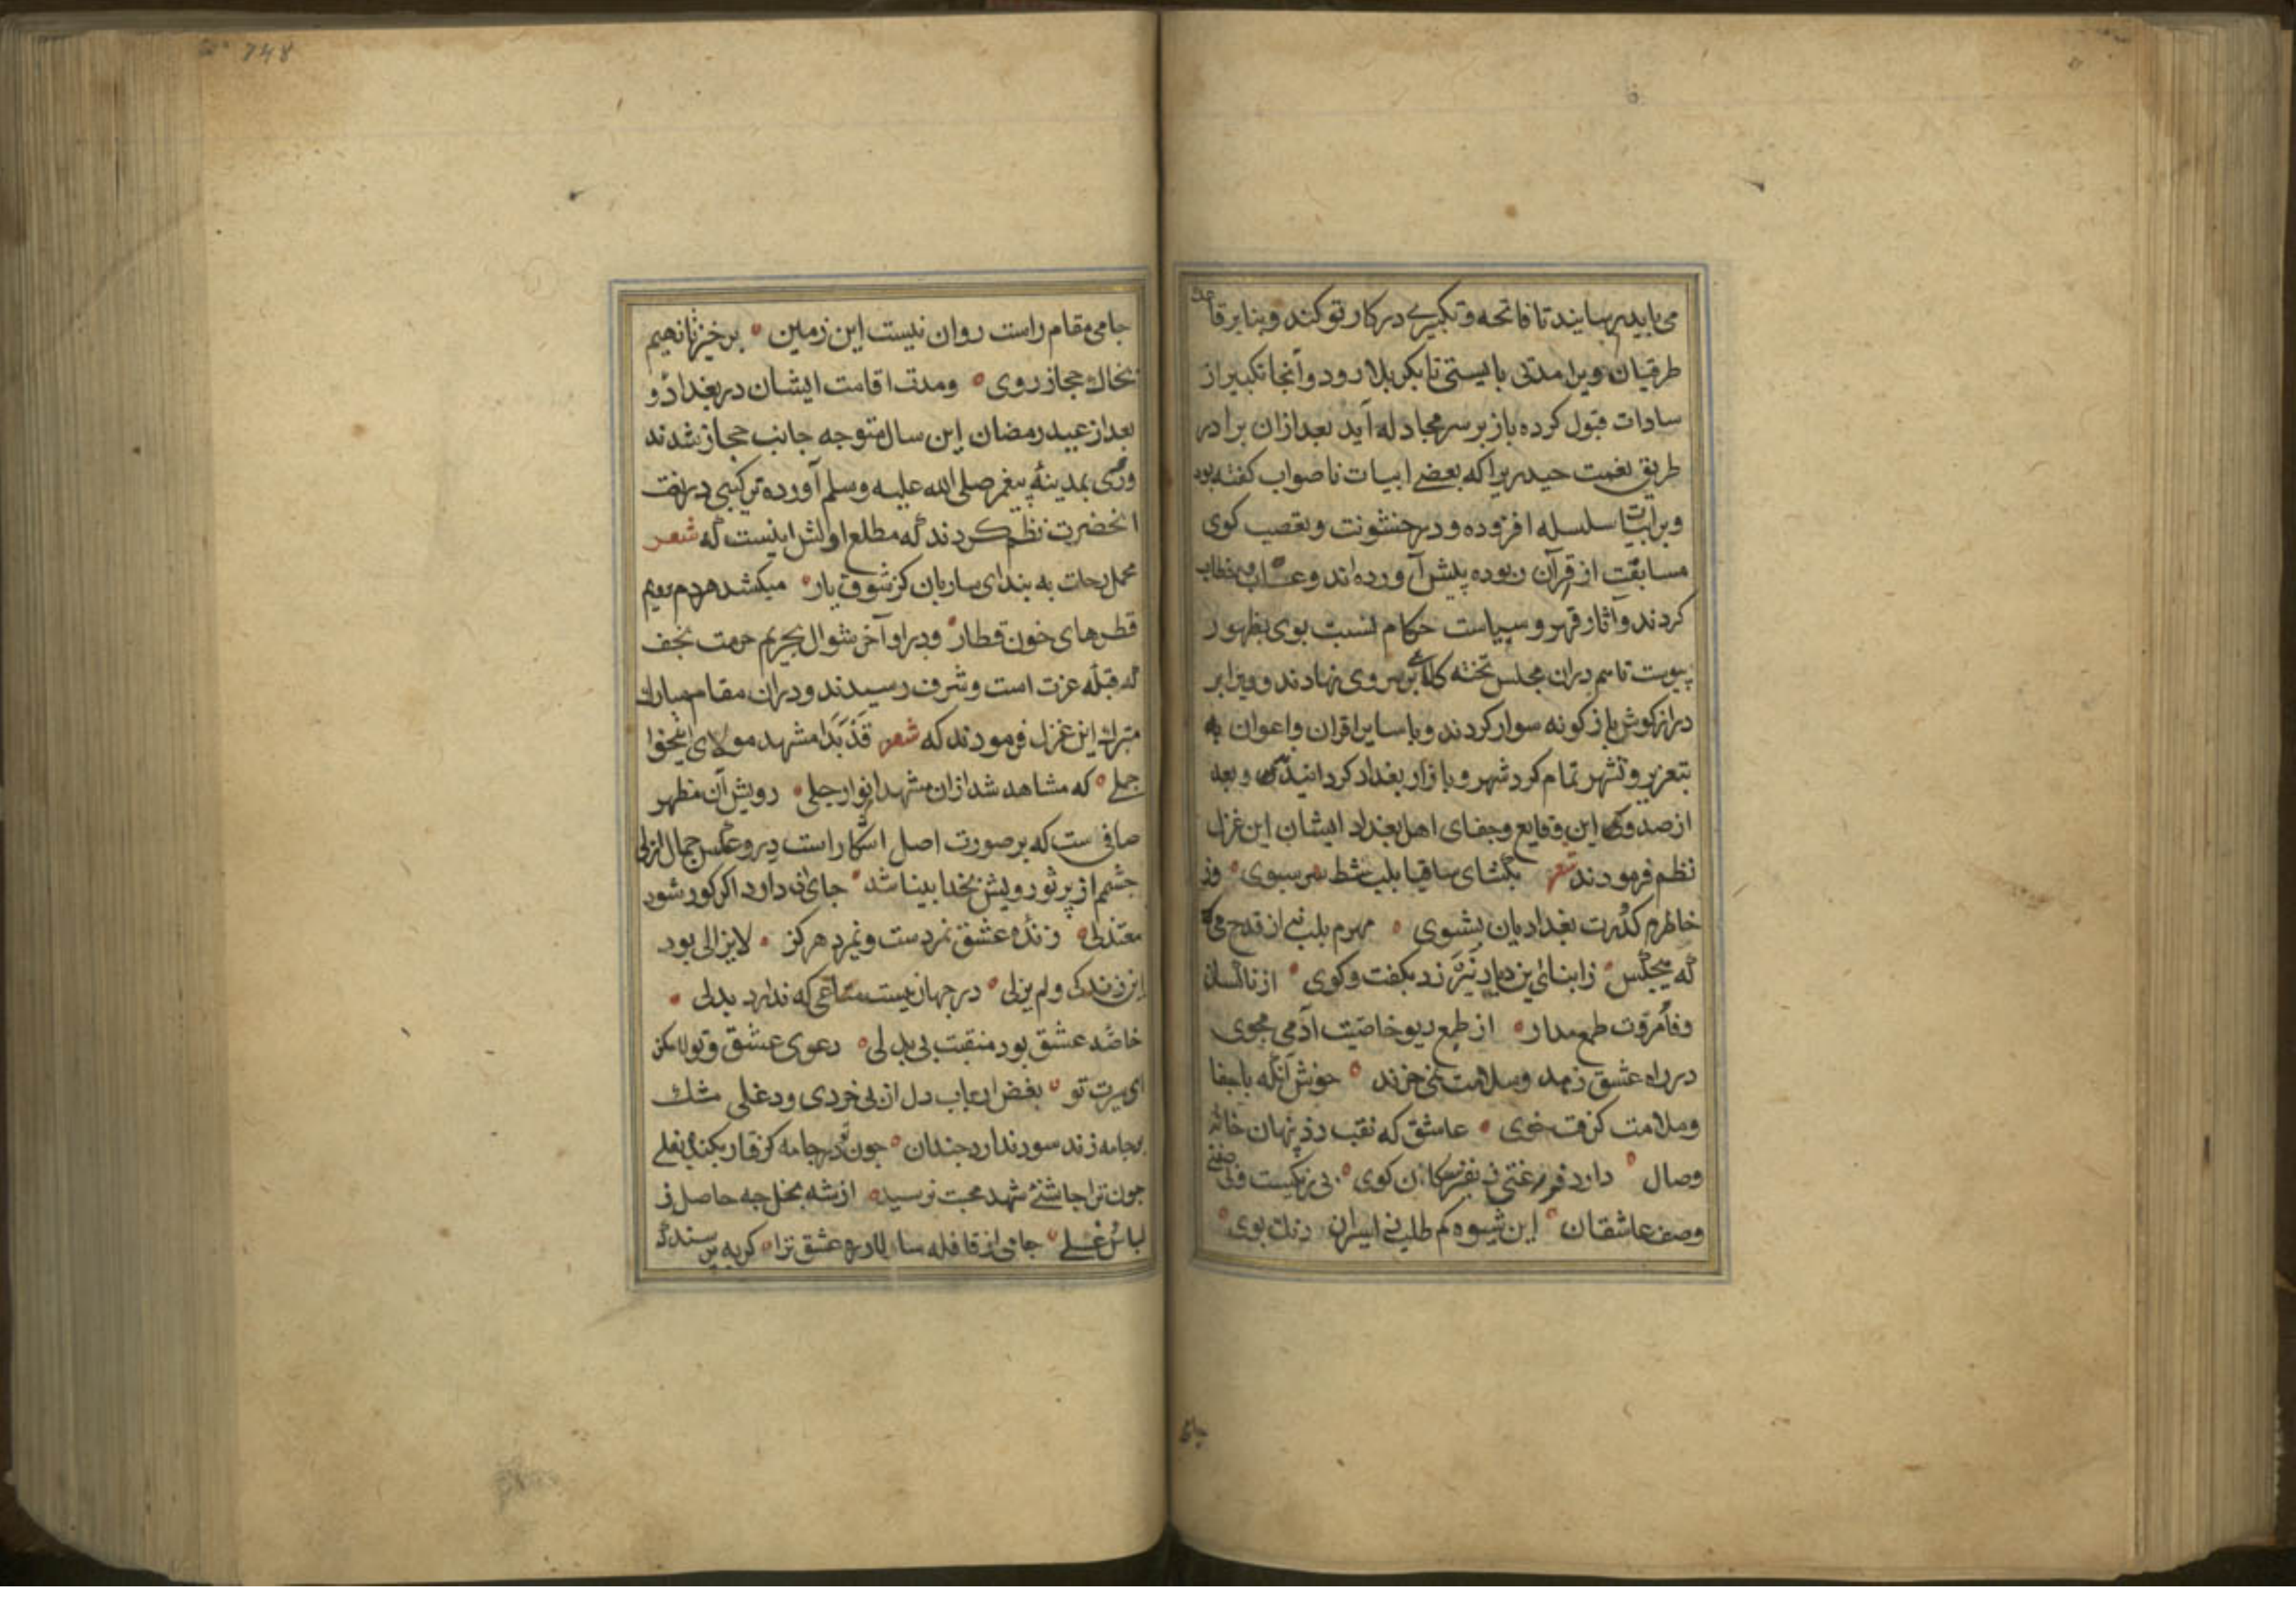 می باید بر سایند تا فاتحه و تکبیری در کار تو کند و بنابر قاعده
طریقیان ویرا مدتی بایستی تا بکربلا رود و آنجا تکبیر از
سادات قبول کرده باز بر سر مجادله آید بعد ازان برادر
طریق نعمت حیدریرا که بعضے ابیات ناصواب کفته بود
وبرابیات سلسله افزوده و در خشونت و تعصب کوی
مسابقت از قرآن ربوده پیش آورده اند و عتاب و خطاب
کردند و آثار قهر و سیاست حکام نسبت بوی بظهور
پیوست تا هم دران مجلس تخته کلاهی بر سر وی نهادند و ویرا بر
دراز کوش باز کونه سوار کردند و با سایر اقران و اعوان به
تعزیر و تشهر تمام کرد شهر و بازار بغداد کردانیدند و بعد
از صدور این وقایع و جفای اهل بغداد ایشان این غزل
نظم فرمودند شعر بکشای ساقیا بلب شط سر سبوی وز
خاطرم کدورت بغدادیان بشوی مهرم بلب نه از قدح می که
که هیچکس زابنای این دیار نیرزد بکفت و کوی از ناکسان
وفا و مروت طمع مدار از طبع دیو خاصیت آدمی مجوی
در راه عشق زهد و سلامت نمی خرند خوش آنکه با جفا
و ملامت کرفت خوی عاشق که نقب زد بنهان خانه
وصال دارد فراغتی ز نفیر سکان کوی بی رنکیست و بی صفتی
وصف عاشقان این شیوه کم طلب ز اسیران رنک بوی
جامی
۷۴۸
جامی مقام راست روان نیست این زمین برخیز تا نهیم
بخاک حجاز روی و مدت اقامت ایشان در بغداد و
بعد از عید رمضان این سال متوجه جانب حجاز شدند
و روی بمدینهٔ پیغمبر صلی الله علیه و سلم آورده ترکیبی در نعت
انحضرت نظم کردند که مطلع اولش اینست که شعر
محمل رحلت به بند ای ساربان کز شوق یار میکشد هردم برویم
قطرهای خون قطار و در اواخر شوال بحریم حرمت نجف
که قبله عزت است و شرف رسیدند و دران مقام مبارک
متبرک این غزل فرمودند که شعر قد بدا مشهد مولای انیخوا
جملی که مشاهد شد ازان مشهد انوار جلی رویش آن مظهر
صافی ست که بر صورت اصل اشکار است درو عکس جمال ازلی
چشم از پرتو رویش بخدا بینا شد جای آن دارد اکر کور شود
معتزلی زنده عشق نمردست و نمیرد هرکز لایزالی بود
این زندکی و لم یزلی در جهان نیست متاعی که ندارد بدلی
خاصه عشق بود منقبت بی بدلی دعوی عشق و تولا مکن
ای سیرت تو بغض ارباب دل از بی خردی و دغلی مشک
بر جامه زند سود ندارد چندان چون تو در جامه کرفتار بکند بغلی
چون ترا چاشنئ شهد محبت نرسید از شه نحل چه حاصل ز
لباس عسلی جامی از قافله سالار ره عشق ترا کر بپرسند که